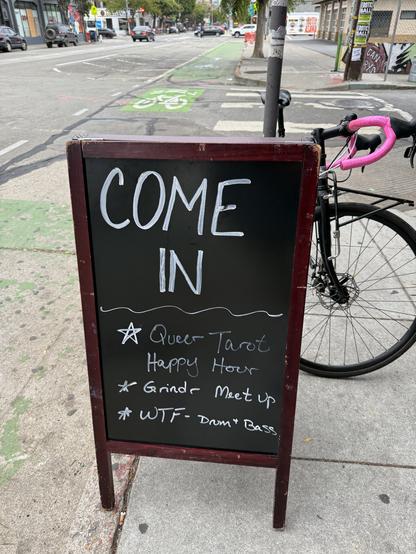 COME
IN
Queer Tarot
Happy Hour
Grindr Meet up
WTF - Drum + Bass